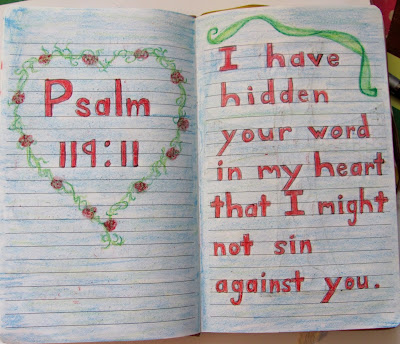 Psalm
119:11
I have
hidden
your word
in my heart
that I might
not sin
against you.